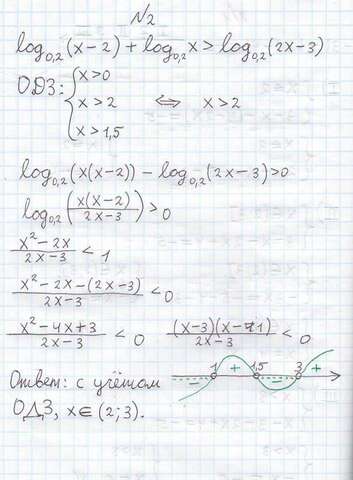 №2
log₀,₂(x-2) + log₀,₂x > log₀,₂(2x-3)
ОДЗ: { x>0
x>2 ⇔ x>2
x>1,5
log₀,₂(x(x-2)) - log₀,₂(2x-3)>0
log₀,₂(x(x-2)/2x-3)>0
x²-2x/2x-3 < 1
x²-2x-(2x-3)/2x-3 < 0
x²-4x+3/2x-3 < 0 (x-3)(x-1)/2x-3 < 0
- 1 + 1,5 - 3 +
Ответ: с учётом
ОДЗ, x∈(2;3).